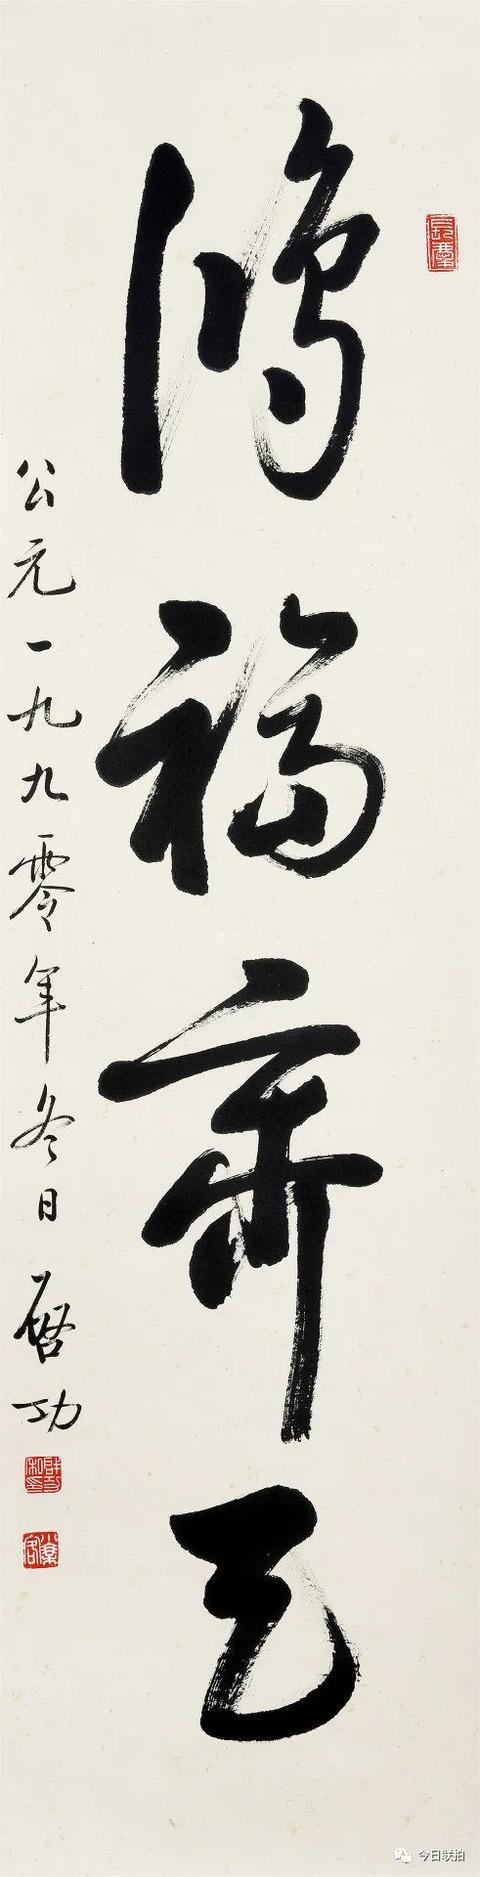 鴻福齊天
公元一九九零年冬日 启功
今日联拍